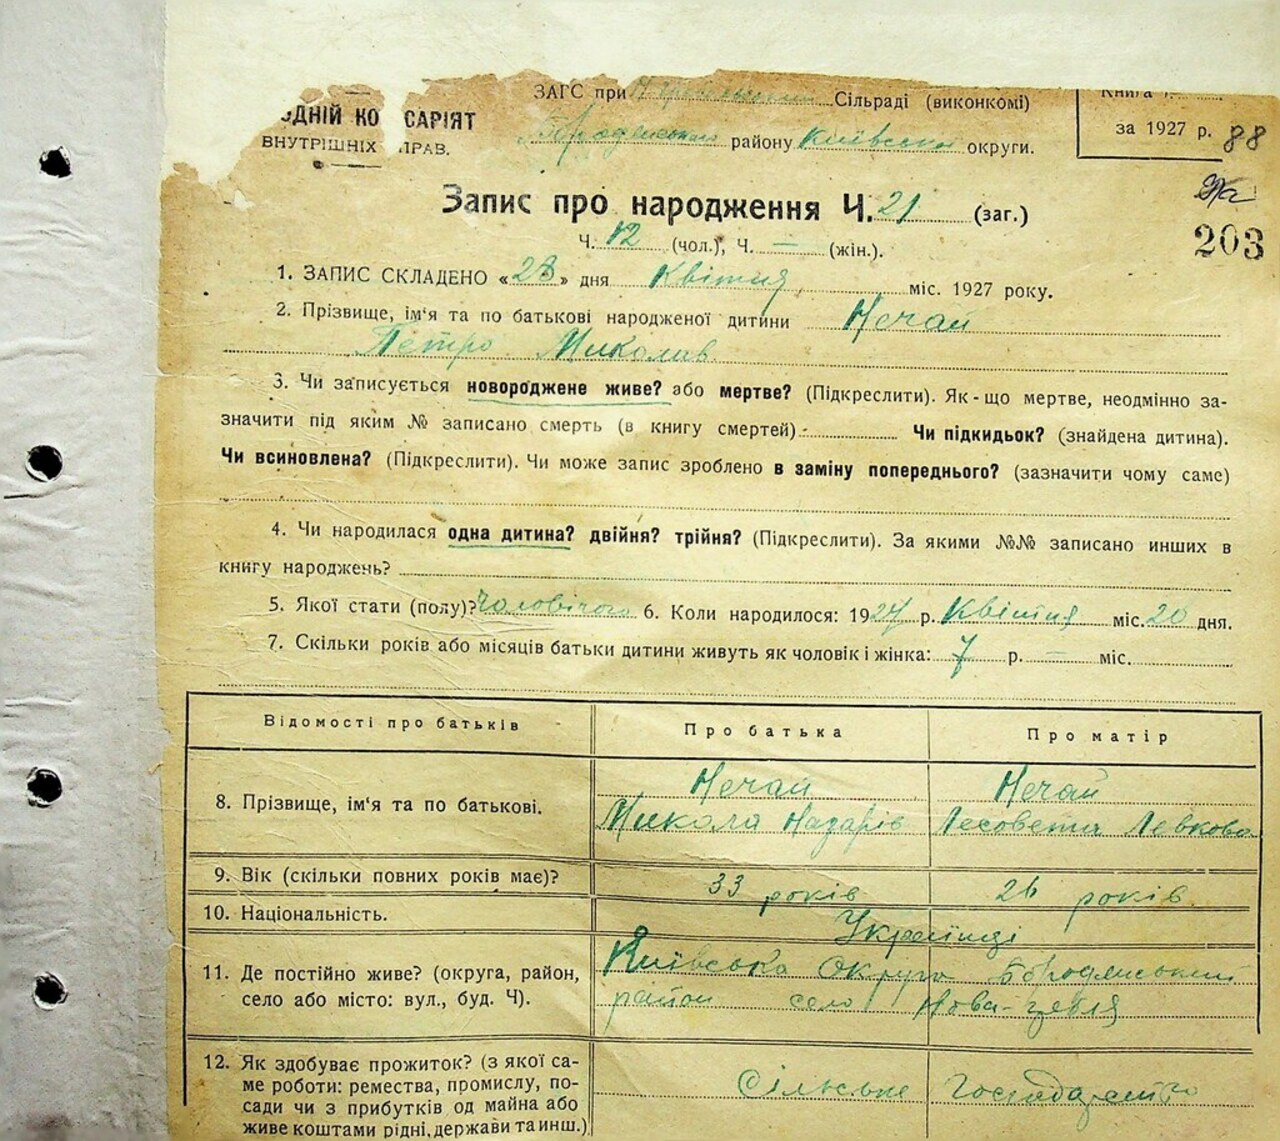 ЗАГС при Сільраді (виконкомі)
Книга
ОДНІЙ КО СЯРІЯТ
ВНУТРІШНІХ ПРАВ.
Бородянського району Київської округи.
за 1927 р. 88
Запис про народження Ч. 21 (заг.)
203
Ч. 12 (чол.), Ч. — (жін.).
1. ЗАПИС СКЛАДЕНО «23» дня Квітня міс. 1927 року.
2. Прізвище, ім'я та по батькові народженої дитини Нечай
Петро Миколав.
3. Чи записується новороджене живе? або мертве? (Підкреслити). Як-що мертве, неодмінно за-
значити під яким № записано смерть (в книгу смертей) Чи підкидьок? (знайдена дитина).
Чи всиновлена? (Підкреслити). Чи може запис зроблено в заміну попереднього? (зазначити чому саме)
4. Чи народилася одна дитина? двійня? трійня? (Підкреслити). За якими №№ записано инших в
книгу народжень?
5. Якої стати (полу)? Чоловічого 6. Коли народилося: 1927 р. Квітня міс. 20 дня.
7. Скільки років або місяців батьки дитини живуть як чоловік і жінка: 7 р. — міс.
Відомості про батьків Про батька Про матір
8. Прізвище, ім'я та по батькові. Нечай Нечай
Микола Назарів Лесовета Левкова
9. Вік (скільки повних років має)? 33 років 26 років
10. Національність. Українці
11. Де постійно живе? (округа, район, Київська Округа Бородянський
село або місто: вул., буд. Ч). район село Нова-Гребля
12. Як здобуває прожиток? (з якої са-
ме роботи: ремества, промислу, по- Сільське Господарство
сади чи з прибутків од майна або
живе коштами рідні, держави та инш.)